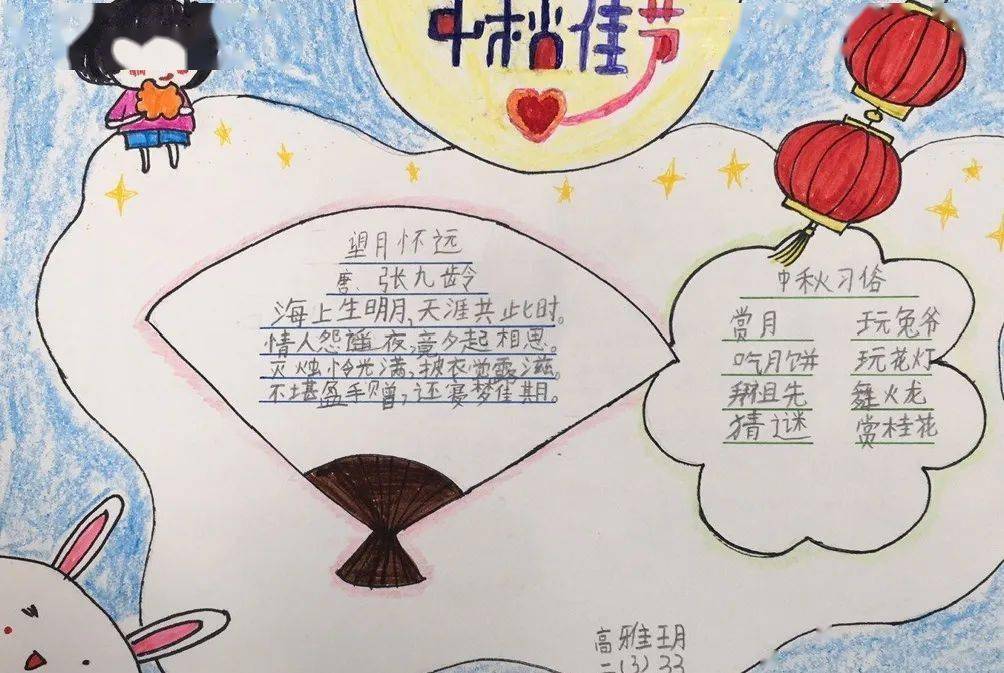 中秋佳节
望月怀远
唐、张九龄
海上生明月，天涯共此时。
情人怨遥夜，竟夕起相思。
灭烛怜光满，披衣觉露滋。
不堪盈手赠，还寝梦佳期。
中秋习俗
赏月 玩兔爷
吃月饼 玩花灯
拜祖先 舞火龙
猜谜 赏桂花
高雅玥
二(3) 33